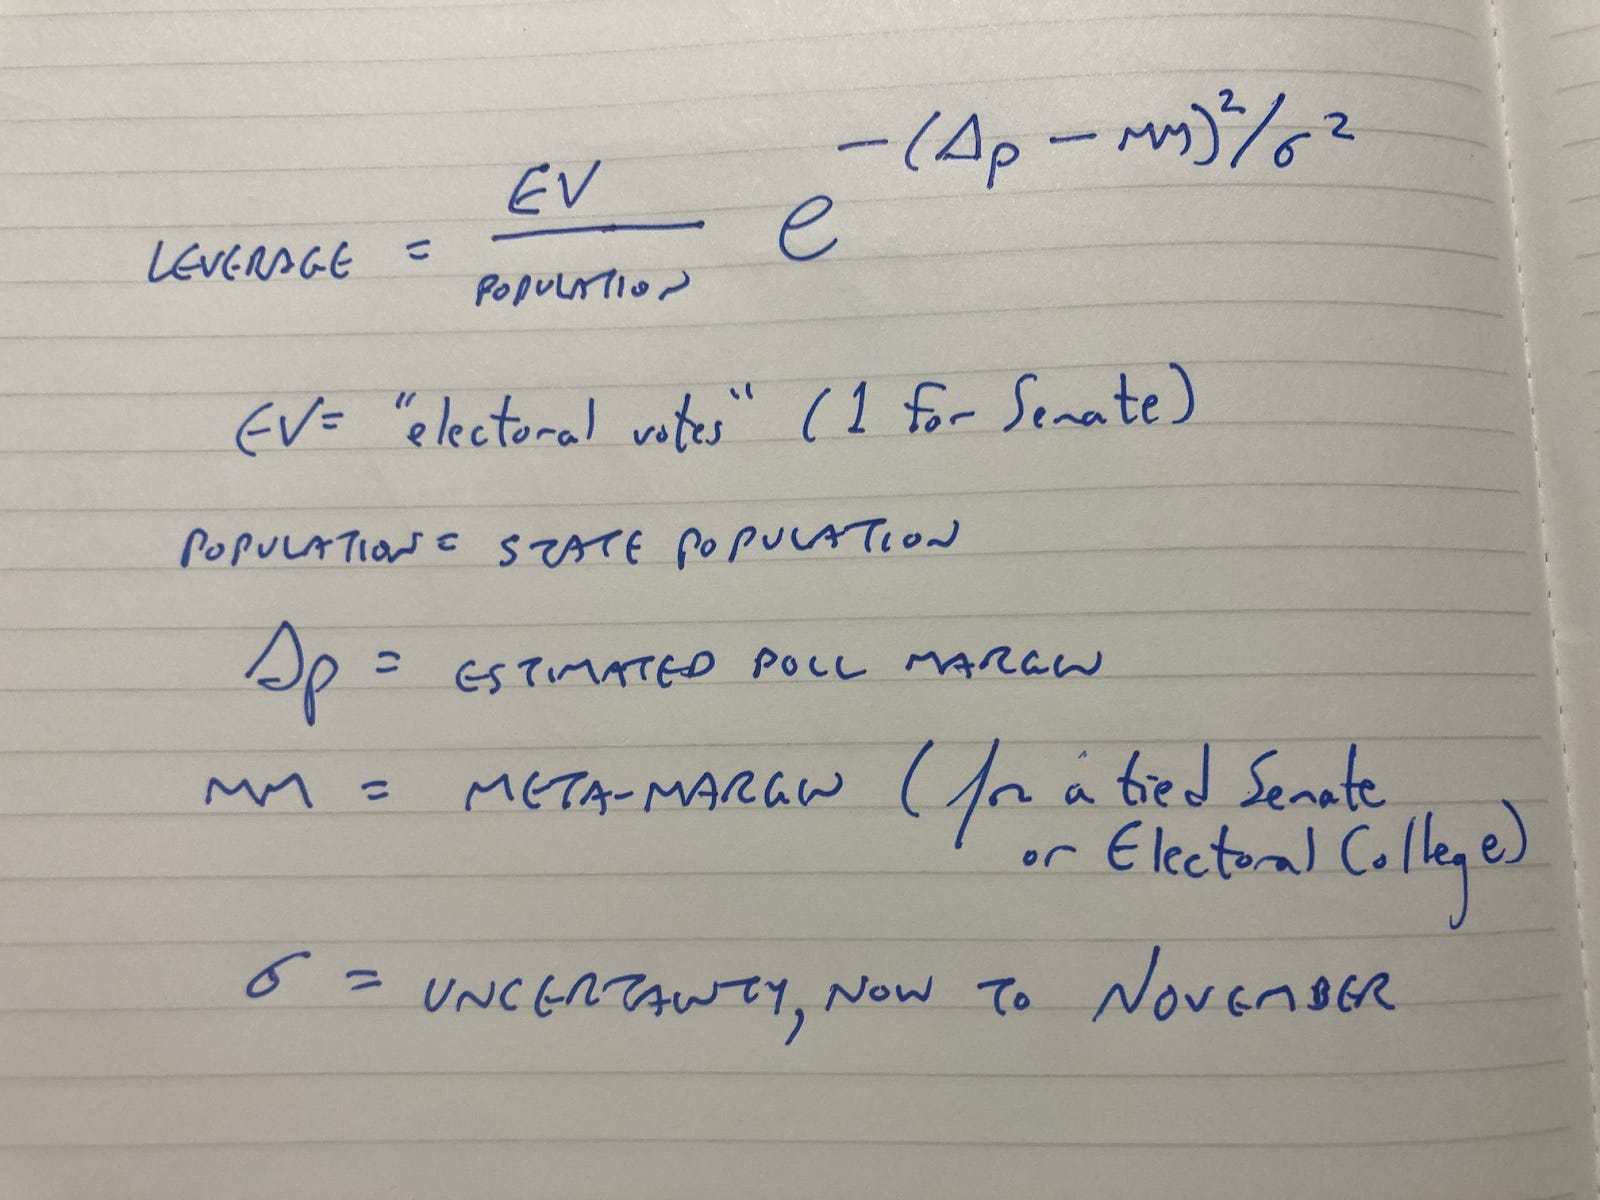 LEVERAGE = EV / POPULATION e^-(Δp - MM)²/σ²
EV = "electoral votes" (1 for Senate)
POPULATION = STATE POPULATION
Δp = ESTIMATED POLL MARGIN
MM = META-MARGIN (for a tied Senate
or Electoral College)
σ = UNCERTAINTY, NOW TO NOVEMBER